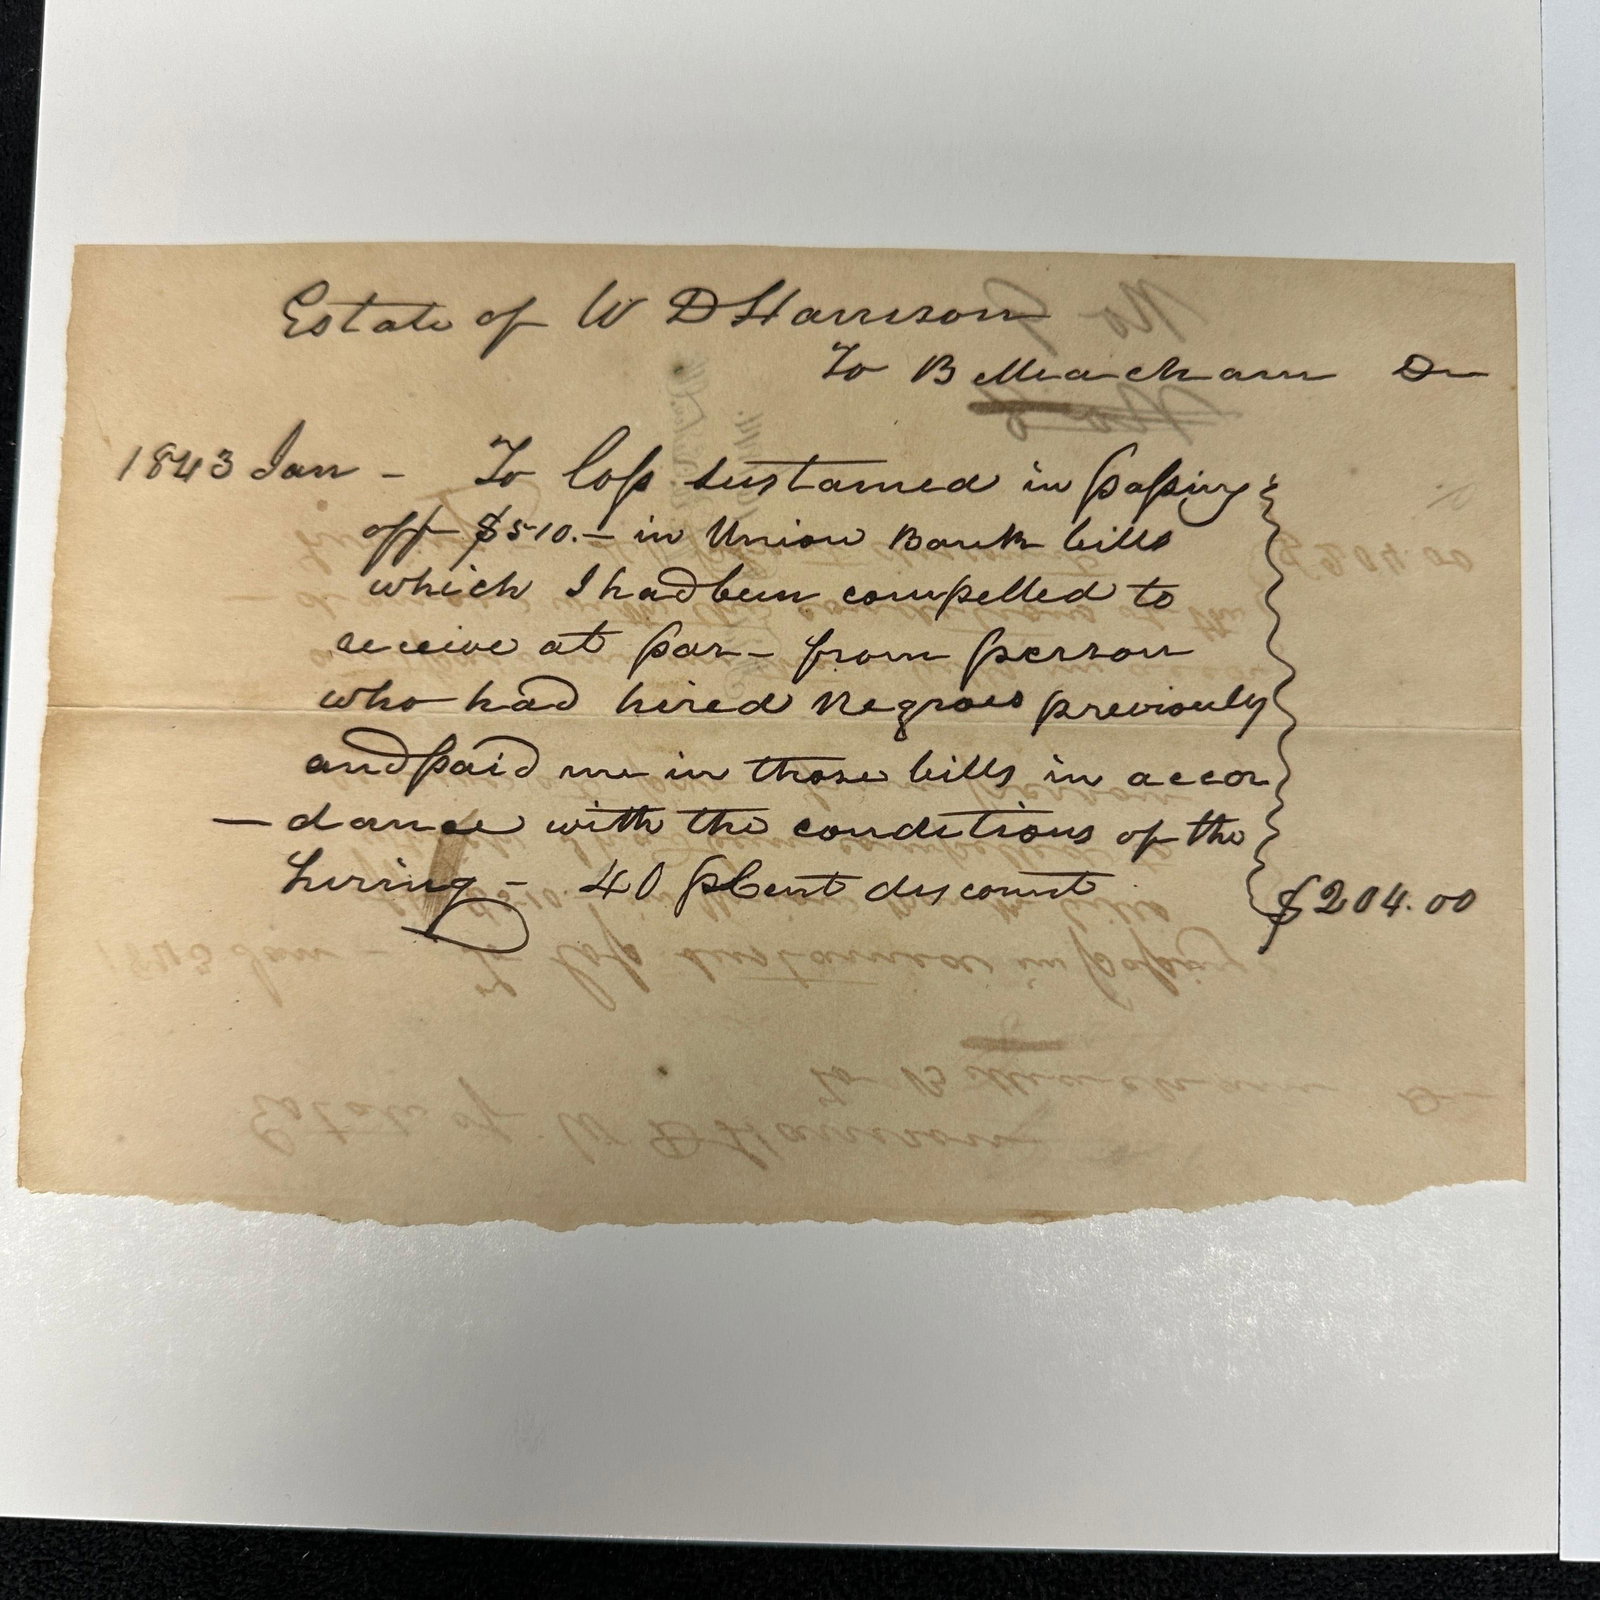 Estate of W D Harrison
To B Meacham Dr
1843 Jan - To loss sustained in passing
off $510.- in Union Bank bills
which I had been compelled to
receive at par - from person
who had hired Negroes previously
and paid me in those bills in accor
-dance with the conditions of the
hiring - 40 pCent discount $204.00